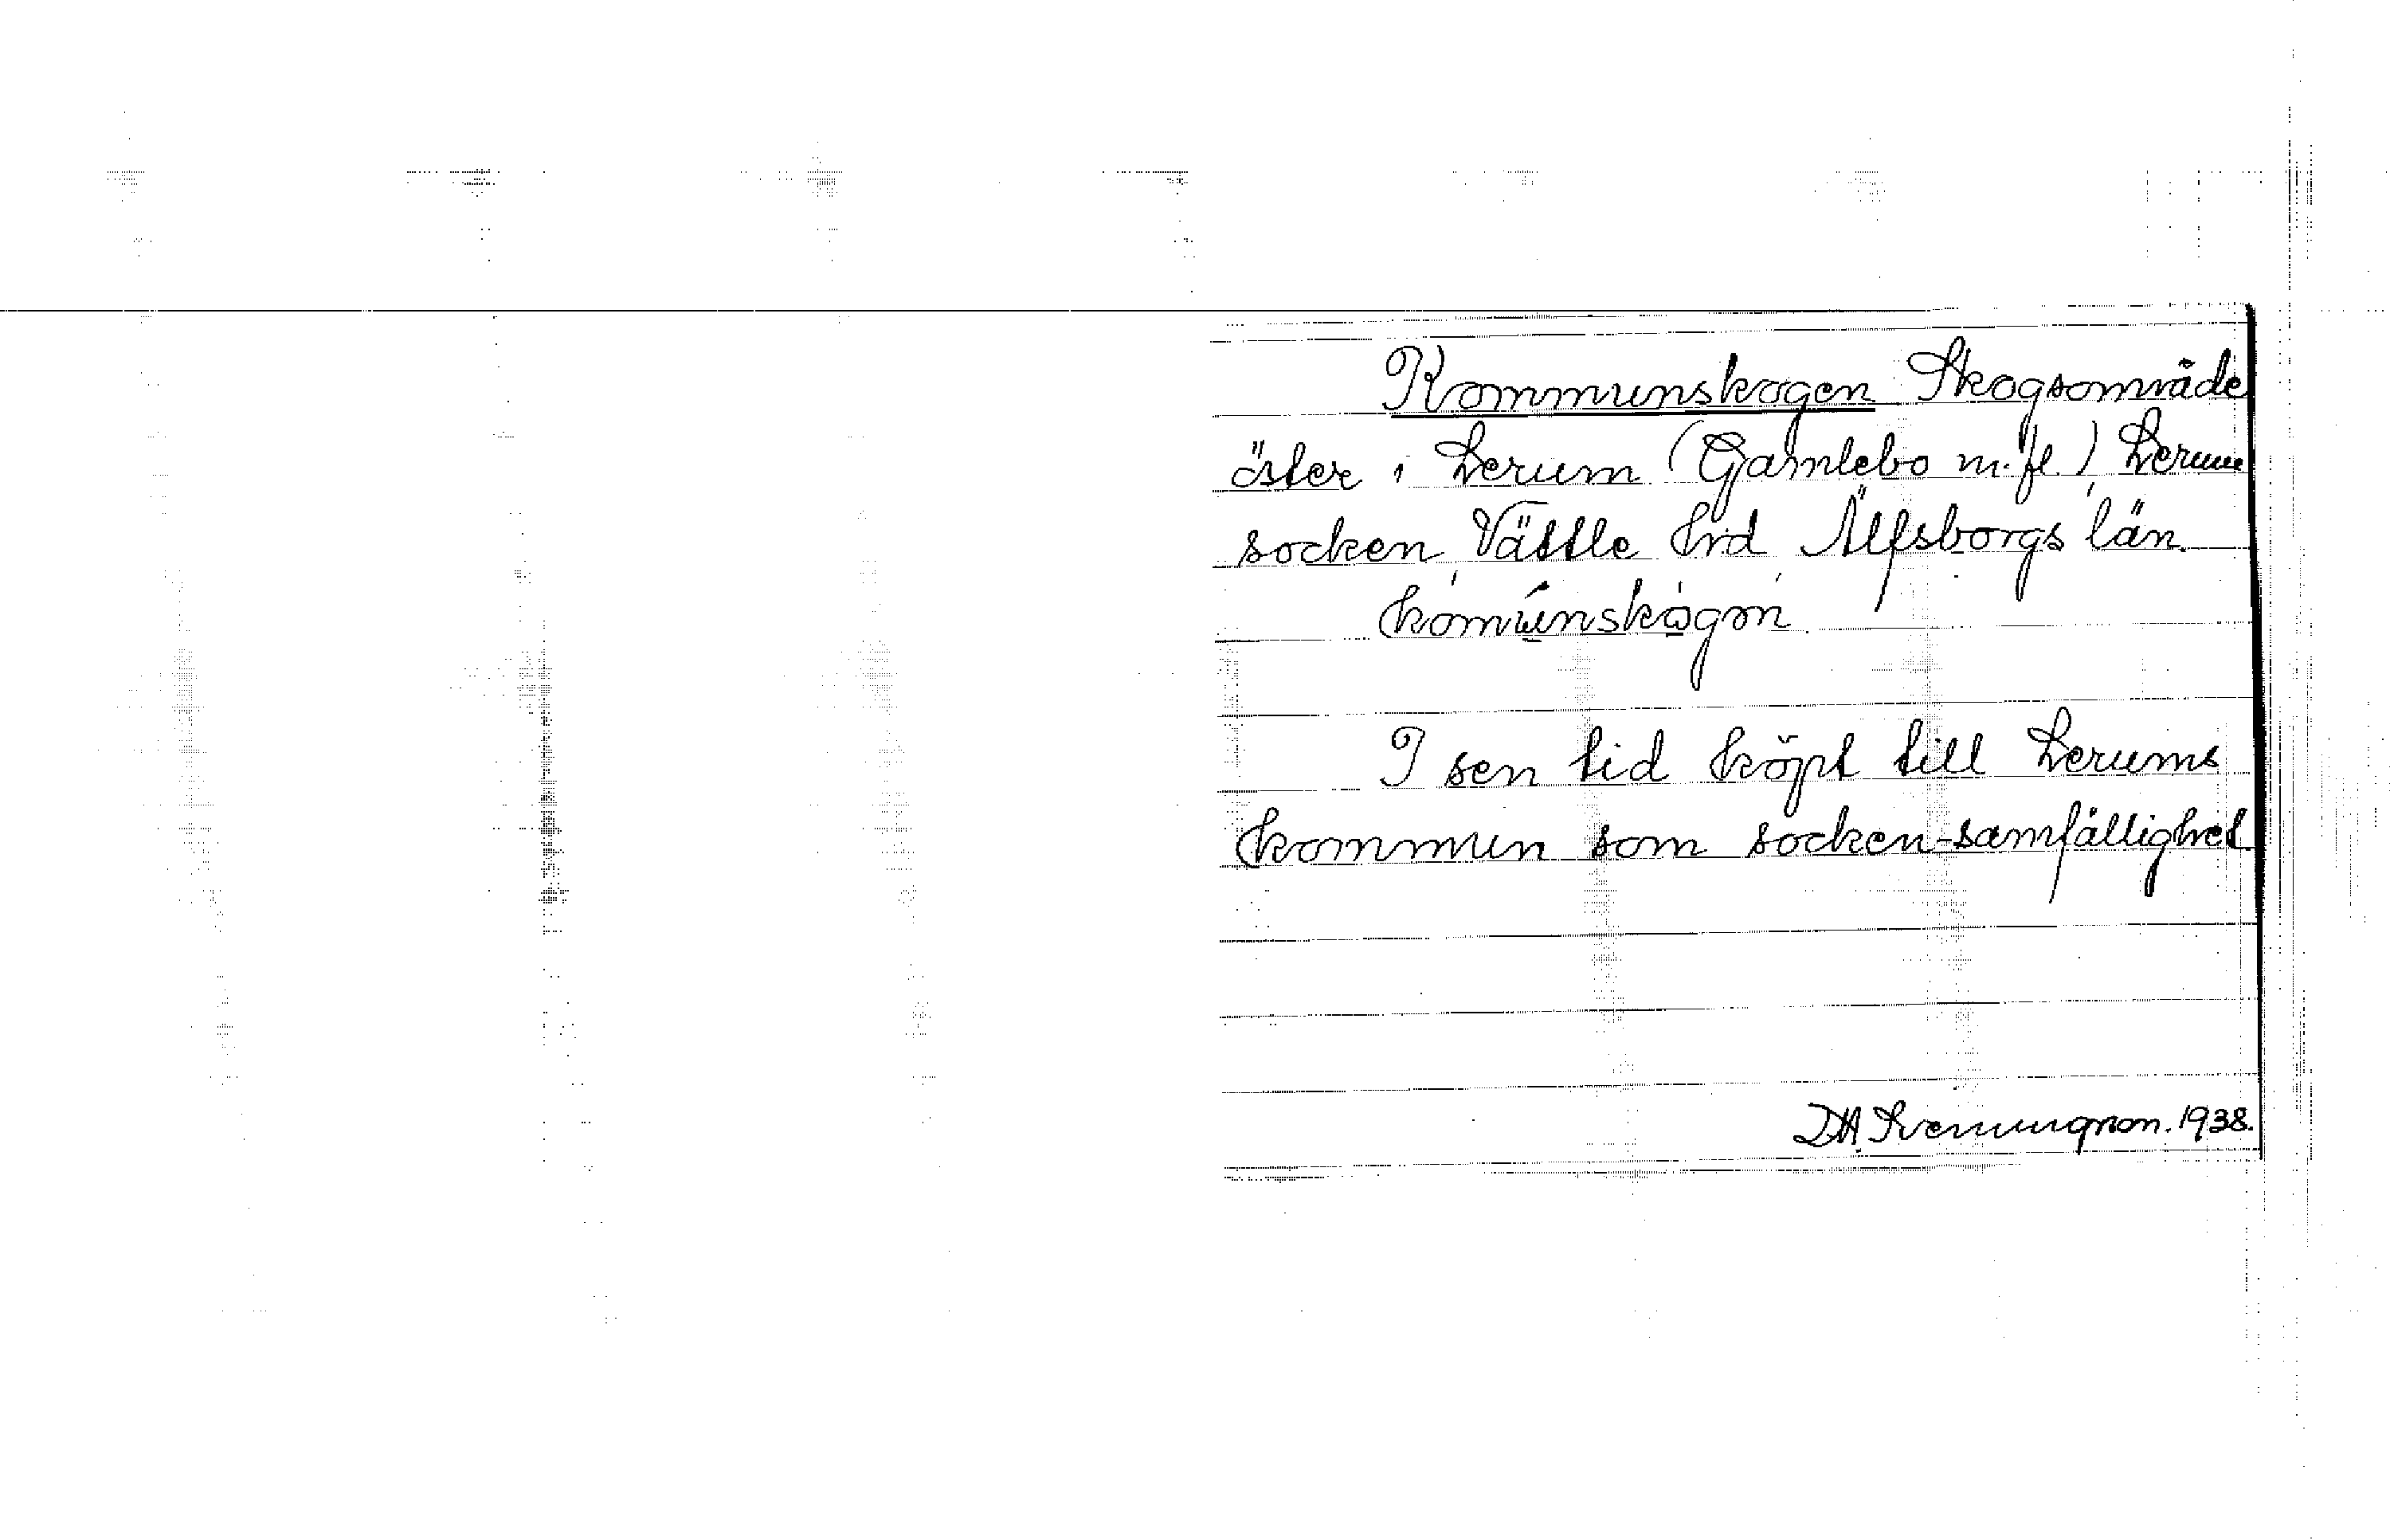 Kommunskogen Skogsområde
öster i Lerum (Gamlebo m.fl.) Lerum
socken, Vättle hrd, Älfsborgs län.
komúnskògən
I sen tid köpt till Lerums
kommun som socken-samfällighet
1938.